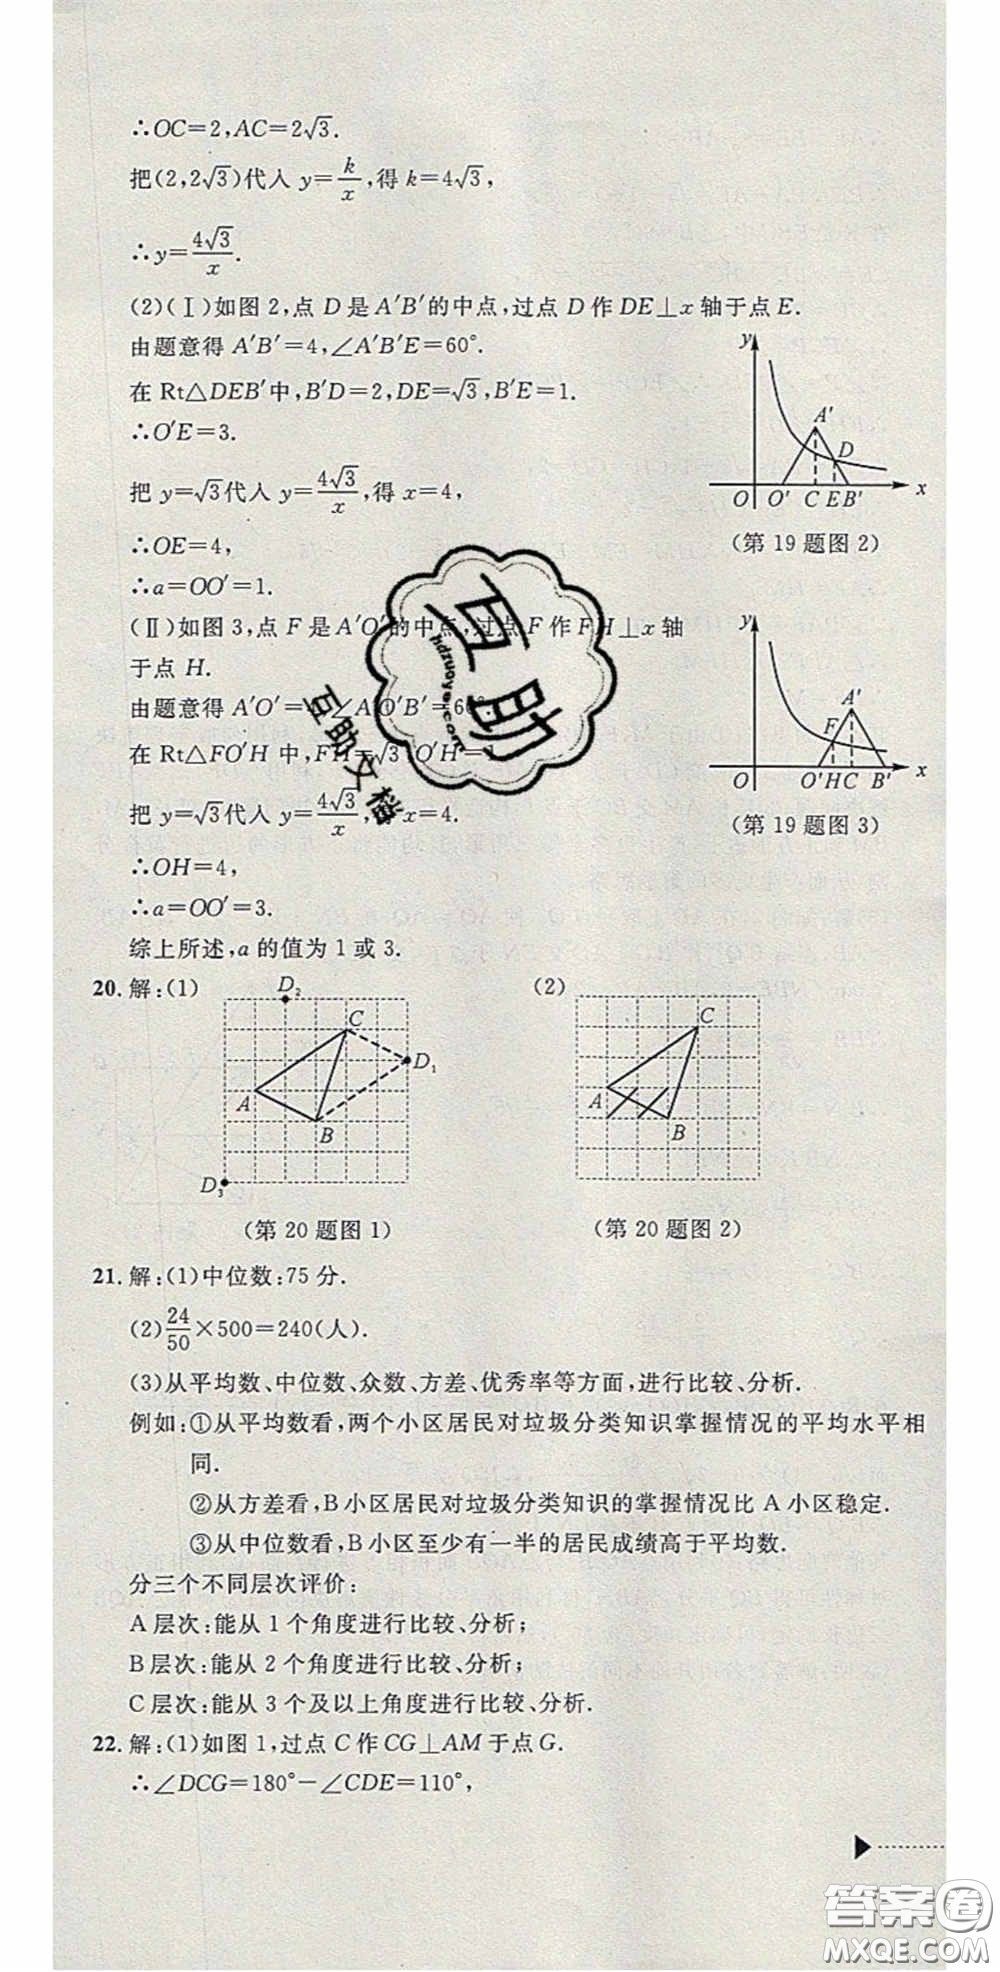 ∴OC=2,AC=2√3.
把(2,2√3)代入 y=k/x,得 k=4√3,
∴y=4√3/x.
(2)(Ⅰ)如图 2,点 D 是 A′B′的中点,过点 D 作 DE⊥x 轴于点 E.
由题意得 A′B′=4,∠A′B′E=60°.
在 Rt△DEB′中,B′D=2,DE=√3,B′E=1.
∴O′E=3.
把 y=√3代入 y=4√3/x,得 x=4,
∴OE=4,
∴a=OO′=1.
y
A′
D
O O′ C E B′ x
(第 19 题图 2)
(Ⅱ)如图 3,点 F 是 A′O′的中点,过点 F 作 FH⊥x 轴
于点 H.
由题意得 A′O′= ∠A′O′B′=60°.
在 Rt△FO′H 中,FH=√3 O′H=
把 y=√3代入 y=4√3/x,得 x=4.
∴OH=4,
∴a=OO′=3.
综上所述,a 的值为 1 或 3.
y
A′
F
O O′ H C B′ x
(第 19 题图 3)
20. 解:(1)
D₂
C
D₁
A
B
D₃
(第 20 题图 1)
(2)
C
A
B
(第 20 题图 2)
21. 解:(1)中位数:75 分.
(2)24/50×500=240(人).
(3)从平均数、中位数、众数、方差、优秀率等方面,进行比较、分析.
例如:①从平均数看,两个小区居民对垃圾分类知识掌握情况的平均水平相
同.
②从方差看,B 小区居民对垃圾分类知识的掌握情况比 A 小区稳定.
③从中位数看,B 小区至少有一半的居民成绩高于平均数.
分三个不同层次评价:
A 层次:能从 1 个角度进行比较、分析;
B 层次:能从 2 个角度进行比较、分析;
C 层次:能从 3 个及以上角度进行比较、分析.
22. 解:(1)如图 1,过点 C 作 CG⊥AM 于点 G.
∴∠DCG=180°−∠CDE=110°,
互助
hdzuoye.com
互助文档
答案圈
MXQE.COM